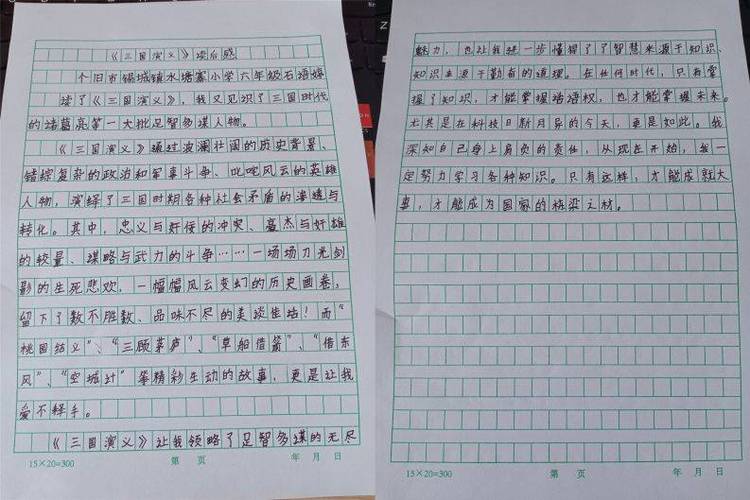 《三国演义》读后感
个旧市锡城镇水塘寨小学六年级石语嫣
读了《三国演义》，我又见识了三国时代
的诸葛亮等一大批足智多谋人物。
《三国演义》通过波澜壮阔的历史背景、
错综复杂的政治和军事斗争、叱咤风云的英雄
人物，演绎了三国时期各种社会矛盾的渗透与
转化。其中，忠义与奸佞的冲突、豪杰与奸雄
的较量、谋略与武力的斗争……一场场刀光剑
影的生死悲欢，一幅幅风云变幻的历史画卷，
留下了数不胜数、品味不尽的美谈佳话！而“
桃园结义”、“三顾茅庐”、“草船借箭”、“借东
风”、“空城计”等精彩生动的故事，更是让我
爱不释手。
《三国演义》让我领略了足智多谋的无尽
15×20=300 第 页 年 月 日
魅力，也让我进一步懂得了了智慧来源于知识、
知识来源于勤奋的道理。在任何时代，只有掌
握了知识，才能掌握话语权，也才能掌握未来。
尤其是在科技日新月异的今天，更是如此。我
深知自己身上肩负的责任，从现在开始，我一
定努力学习各种知识。只有这样，才能成就大
事，才能成为国家的栋梁之材。
15×20=300 第 页 年 月 日